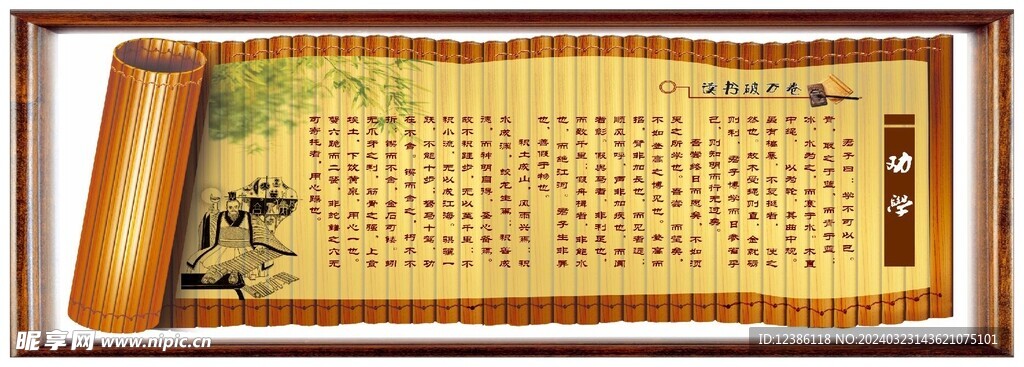 读书破万卷
劝学
君子曰：学不可以已。
青，取之于蓝，而青于蓝；
冰，水为之，而寒于水。木直
中绳，以为轮，其曲中规。
虽有槁暴，不复挺者，使之
然也。故木受绳则直，金就砺
则利，君子博学而日参省乎
己，则知明而行无过矣。
吾尝终日而思矣，不如须
臾之所学也。吾尝而望矣，
不如登高之博见也。登高而
招，臂非加长也，而见者远；
顺风而呼，声非加疾也，而闻
者彰。假舆马者，非利足也，
而致千里；假舟楫者，非能水
也，而绝江河。君子生非异
也，善假于物也。
积土成山，风雨兴焉；积
水成渊，蛟龙生焉；积善成
德，而神明自得，圣心备焉。
故不积跬步，无以至千里；不
积小流，无以成江海。骐骥一
跃，不能十步；驽马十驾，功
在不舍。锲而舍之，朽木不
折；锲而不舍，金石可镂。蚓
无爪牙之利，筋骨之强，上食
埃土，下饮黄泉，用心一也。
蟹六跪而二螯，非蛇鳝之穴无
可寄托者，用心躁也。
昵享网 www.nipic.cn
ID:12386118 NO:20240323143621075101